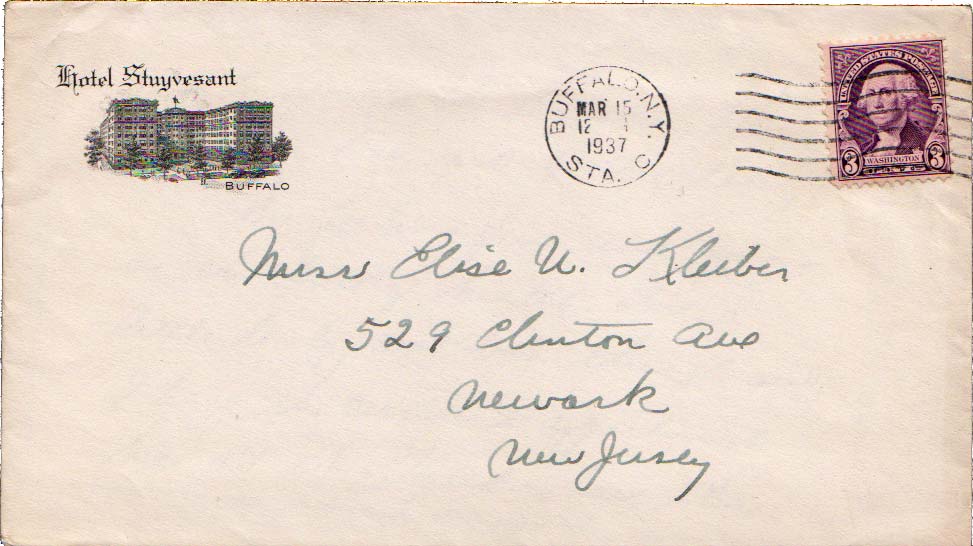 Hotel Stuyvesant
BUFFALO
BUFFALO, N.Y.
MAR 15
12
1937
STA. C
UNITED STATES POSTAGE
3 WASHINGTON 3
Miss Elise U. Kleiber
529 Clinton Ave
Newark
New Jersey